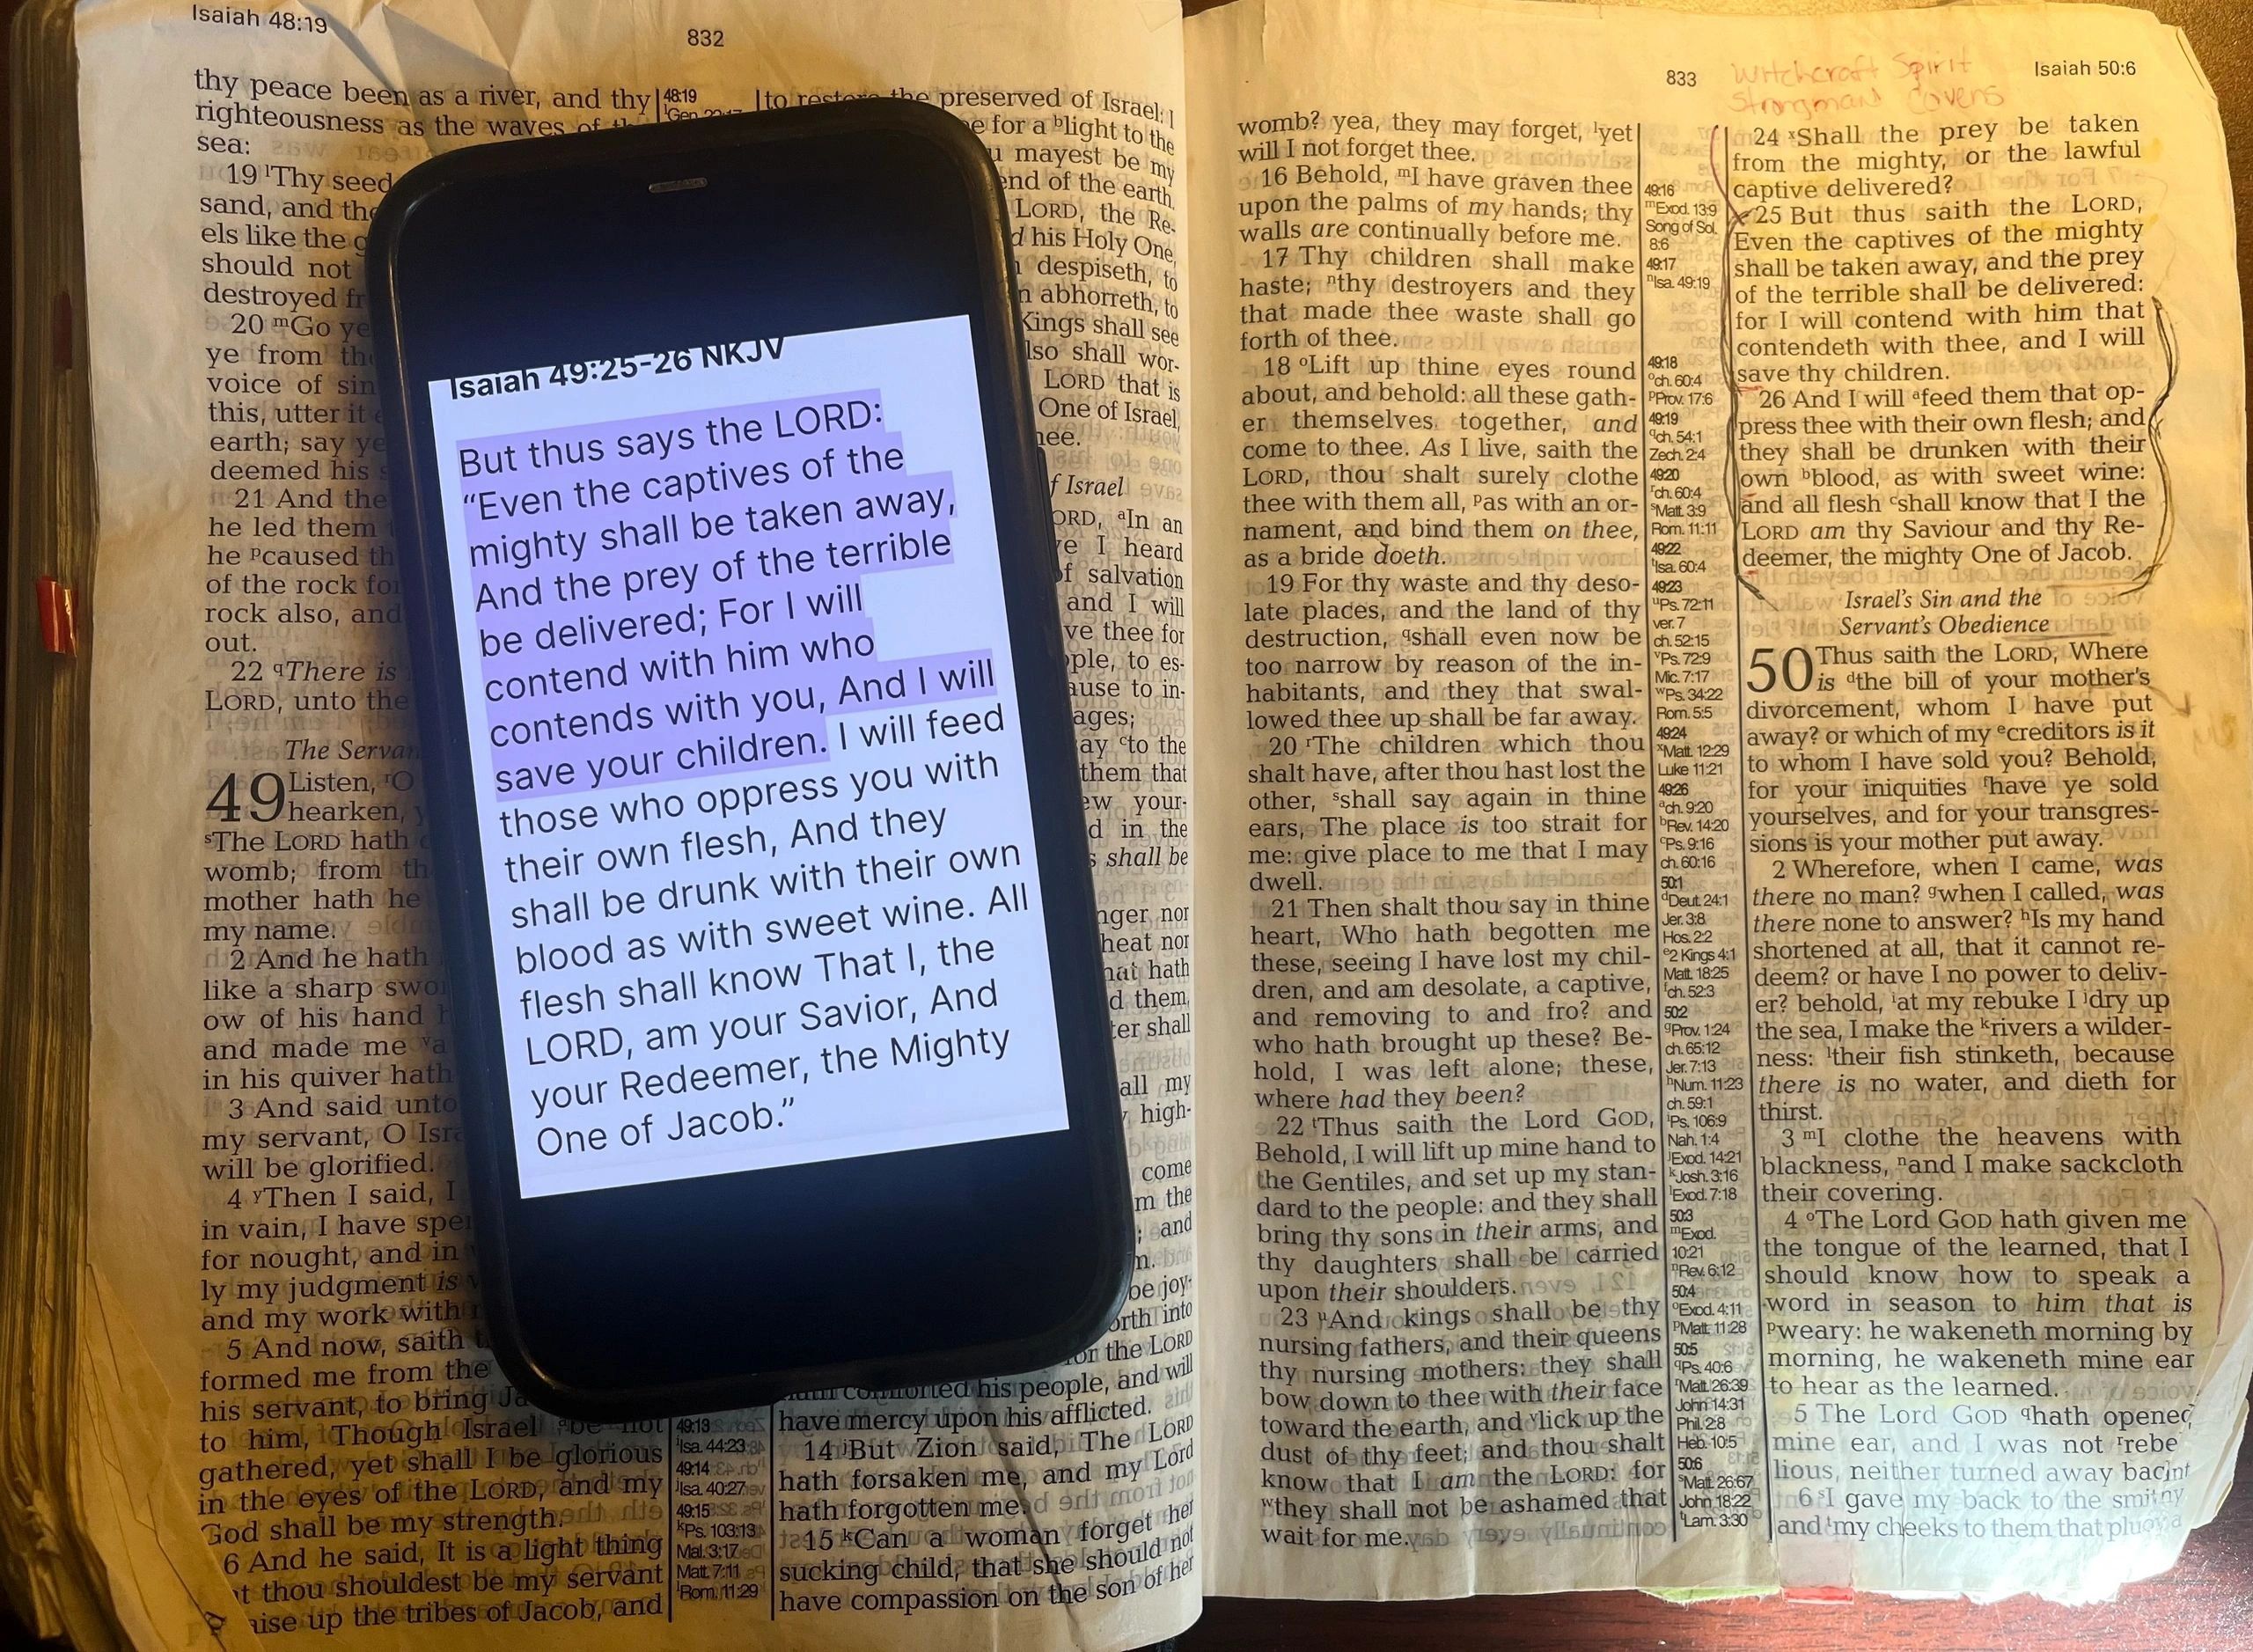 Isaiah 48:19
832
thy peace been as a river, and thy
righteousness as the waves of
sea:
19 lThy seed
sand, and the
els like the
should not
destroyed
20 mGo ye
ye from
voice of
this, utter it
earth; say ye
deemed his
21 And the
he led them
he pcaused
of the rock
rock also, and
out.
22 qThere is
LORD, unto the
The
49 Listen, rO
hearken,
sThe LORD hath
womb; from
mother hath he
my name.
2 And he hath
like a sharp
ow of his hand
and made me
in his quiver hath
3 And said unto
my servant, O
will be glorified.
4 yThen I said, I
in vain, I have
for nought, and in
ly my judgment is
and my work with
5 And now, saith
formed me from the
his servant, to bring
to him, Though Israel abe not
gathered, yet shall I be glorious
in the eyes of the LORD, and my
God shall be my strength.
6 And he said, It is a light thing
thou shouldest be my servant
up the tribes of Jacob, and
48:19
lGen.
49:13
iIsa. 44:23
49:14
jIsa. 40:27
49:15
kPs. 103:13
Mal. 3:17
Matt. 7:11
lRom. 11:29
to restore the preserved of Israel: I
for a blight to the
mayest be my
end of the earth.
LORD, the Re-
his Holy One,
despiseth, to
abhorreth, to
Kings shall see
shall wor-
LORD that is
One of Israel,
thee.
Israel
aIn an
I heard
of salvation
and I will
thee for
to es-
to in-
cto the
them that
your-
in the
shall be
nor
heat nor
hath
them,
shall
all my
high-
come
the
and
be joy-
into
the LORD
comforted his people, and will
have mercy upon his afflicted.
14 jBut Zion said, The LORD
hath forsaken me, and my Lord
hath forgotten me.
15 kCan a woman forget her
sucking child, that she should not
have compassion on the son of her
Isaiah 49:25-26 NKJV
But thus says the LORD:
“Even the captives of the
mighty shall be taken away,
And the prey of the terrible
be delivered; For I will
contend with him who
contends with you, And I will
save your children. I will feed
those who oppress you with
their own flesh, And they
shall be drunk with their own
blood as with sweet wine. All
flesh shall know That I, the
LORD, am your Savior, And
your Redeemer, the Mighty
One of Jacob.”
833
Witchcraft Spirit
Strongman Covens
Isaiah 50:6
womb? yea, they may forget, lyet
will I not forget thee.
16 Behold, mI have graven thee
upon the palms of my hands; thy
walls are continually before me.
17 Thy children shall make
haste; nthy destroyers and they
that made thee waste shall go
forth of thee.
18 oLift up thine eyes round
about, and behold: all these gath-
er themselves together, and
come to thee. As I live, saith the
LORD, thou shalt surely clothe
thee with them all, pas with an or-
nament, and bind them on thee,
as a bride doeth.
19 For thy waste and thy deso-
late places, and the land of thy
destruction, qshall even now be
too narrow by reason of the in-
habitants, and they that swal-
lowed thee up shall be far away.
20 rThe children which thou
shalt have, after thou hast lost the
other, sshall say again in thine
ears, The place is too strait for
me: give place to me that I may
dwell.
21 Then shalt thou say in thine
heart, Who hath begotten me
these, seeing I have lost my chil-
dren, and am desolate, a captive,
and removing to and fro? and
who hath brought up these? Be-
hold, I was left alone; these,
where had they been?
22 tThus saith the Lord GOD,
Behold, I will lift up mine hand to
the Gentiles, and set up my stan-
dard to the people: and they shall
bring thy sons in their arms, and
thy daughters shall be carried
upon their shoulders.
23 uAnd kings shall be thy
nursing fathers, and their queens
thy nursing mothers: they shall
bow down to thee with their face
toward the earth, and vlick up the
dust of thy feet; and thou shalt
know that I am the LORD: for
wthey shall not be ashamed that
wait for me.
49:16
mExod. 13:9
Song of Sol.
8:6
49:17
nIsa. 49:19
49:18
och. 60:4
pProv. 17:6
49:19
qch. 54:1
Zech. 2:4
49:20
rch. 60:4
sMatt. 3:9
Rom. 11:11
49:22
tIsa. 60:4
49:23
uPs. 72:11
ver. 7
ch. 52:15
vPs. 72:9
Mic. 7:17
wPs. 34:22
Rom. 5:5
49:24
xMatt. 12:29
Luke 11:21
49:26
ach. 9:20
bRev. 14:20
cPs. 9:16
ch. 60:16
50:1
dDeut. 24:1
Jer. 3:8
Hos. 2:2
e2 Kings 4:1
Matt. 18:25
fch. 52:3
50:2
gProv. 1:24
ch. 65:12
Jer. 7:13
hNum. 11:23
ch. 59:1
iPs. 106:9
Nah. 1:4
jExod. 14:21
kJosh. 3:16
lExod. 7:18
50:3
mExod.
10:21
nRev. 6:12
50:4
oExod. 4:11
pMatt. 11:28
50:5
qPs. 40:6
rMatt. 26:39
John 14:31
Phil. 2:8
Heb. 10:5
50:6
sMatt. 26:67
John 18:22
tLam. 3:30
24 xShall the prey be taken
from the mighty, or the lawful
captive delivered?
25 But thus saith the LORD,
Even the captives of the mighty
shall be taken away, and the prey
of the terrible shall be delivered:
for I will contend with him that
contendeth with thee, and I will
save thy children.
26 And I will afeed them that op-
press thee with their own flesh; and
they shall be drunken with their
own bblood, as with sweet wine:
and all flesh cshall know that I the
LORD am thy Saviour and thy Re-
deemer, the mighty One of Jacob.
Israel’s Sin and the
Servant’s Obedience
50 Thus saith the LORD, Where
is dthe bill of your mother’s
divorcement, whom I have put
away? or which of my ecreditors is it
to whom I have sold you? Behold,
for your iniquities fhave ye sold
yourselves, and for your transgres-
sions is your mother put away.
2 Wherefore, when I came, was
there no man? gwhen I called, was
there none to answer? hIs my hand
shortened at all, that it cannot re-
deem? or have I no power to deliv-
er? behold, iat my rebuke I jdry up
the sea, I make the krivers a wilder-
ness: ltheir fish stinketh, because
there is no water, and dieth for
thirst.
3 mI clothe the heavens with
blackness, nand I make sackcloth
their covering.
4 oThe Lord GOD hath given me
the tongue of the learned, that I
should know how to speak a
word in season to him that is
pweary: he wakeneth morning by
morning, he wakeneth mine ear
to hear as the learned.
5 The Lord GOD qhath opened
mine ear, and I was not rrebe
lious, neither turned away
6 sI gave my back to the
and tmy cheeks to them that